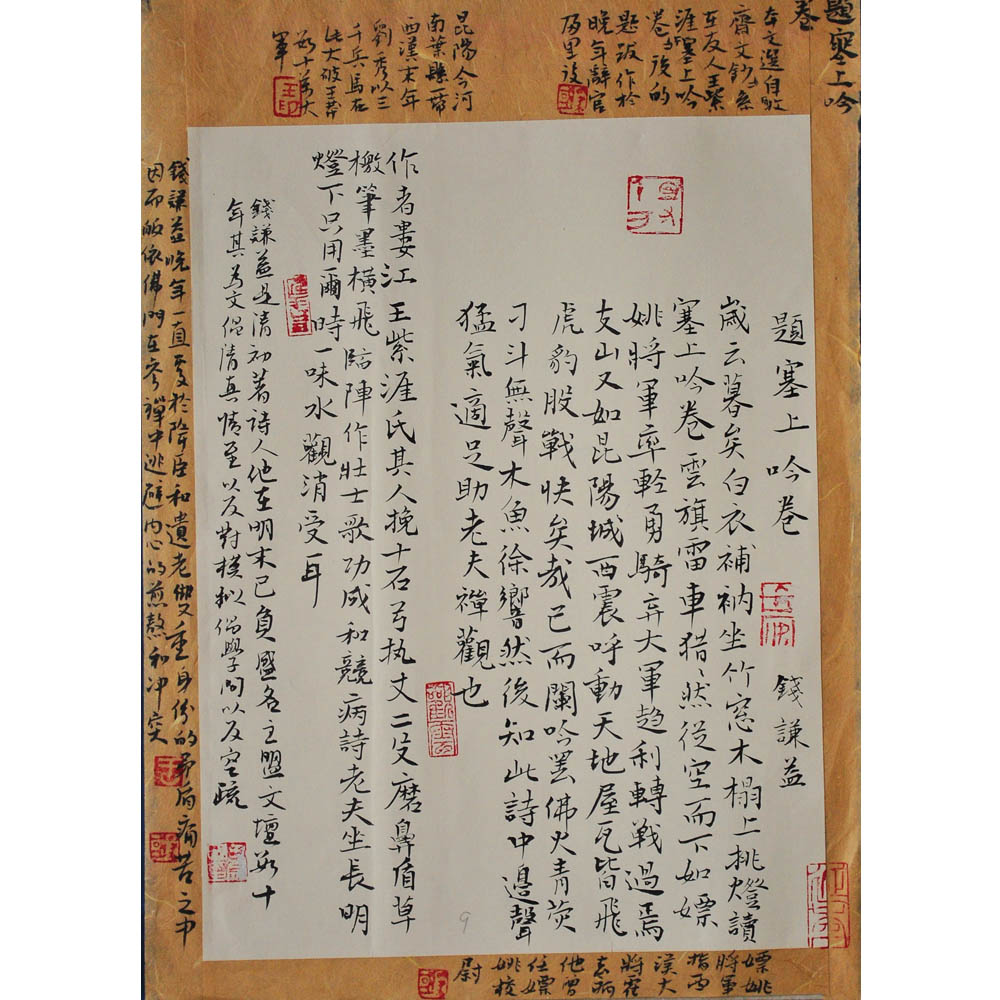 題塞上吟
卷
本文選自牧
齋文鈔系
在友人王紫
涯塞上吟
卷後的
題跋作於
晚年辭官
題塞上吟卷
錢謙益
歲云暮矣白衣補衲坐竹窓木榻上挑燈讀
塞上吟卷雲旗雷車猎猎然從空而下如嫖
姚將軍率輕勇騎弃大軍趋利轉戰過焉
支山又如昆陽城西震呼動天地屋瓦皆飛
虎豹股戰快矣哉已而闌吟罢佛火青荧
刁斗無聲木魚徐響然後知此詩中邊聲
猛氣適足助老夫禅觀也
作者婁江王紫涯氏其人挽十石弓执丈二殳磨鼻盾草
檄筆墨橫飛臨陣作壯士歌功成和競病詩老夫坐長明
燈下只用爾時一味水觀消受耳
錢謙益是清初著詩人他在明末已負盛名主盟文壇數十
年其為文倡清真情至以反對模拟俗學問以反空疏
昆陽今河
南葉縣一帶
西漢末年
劉秀以三
千兵馬在
此大破王莽
數十萬大
軍
錢謙益晚年一直處於降臣和遺老雙重身份的矛盾痛苦之中
因而皈依佛門在參禪中逃避内心的煎熬和冲突
嫖姚
將軍
指西
漢大
將霍
去病
他曾
任嫖
姚校
尉
9